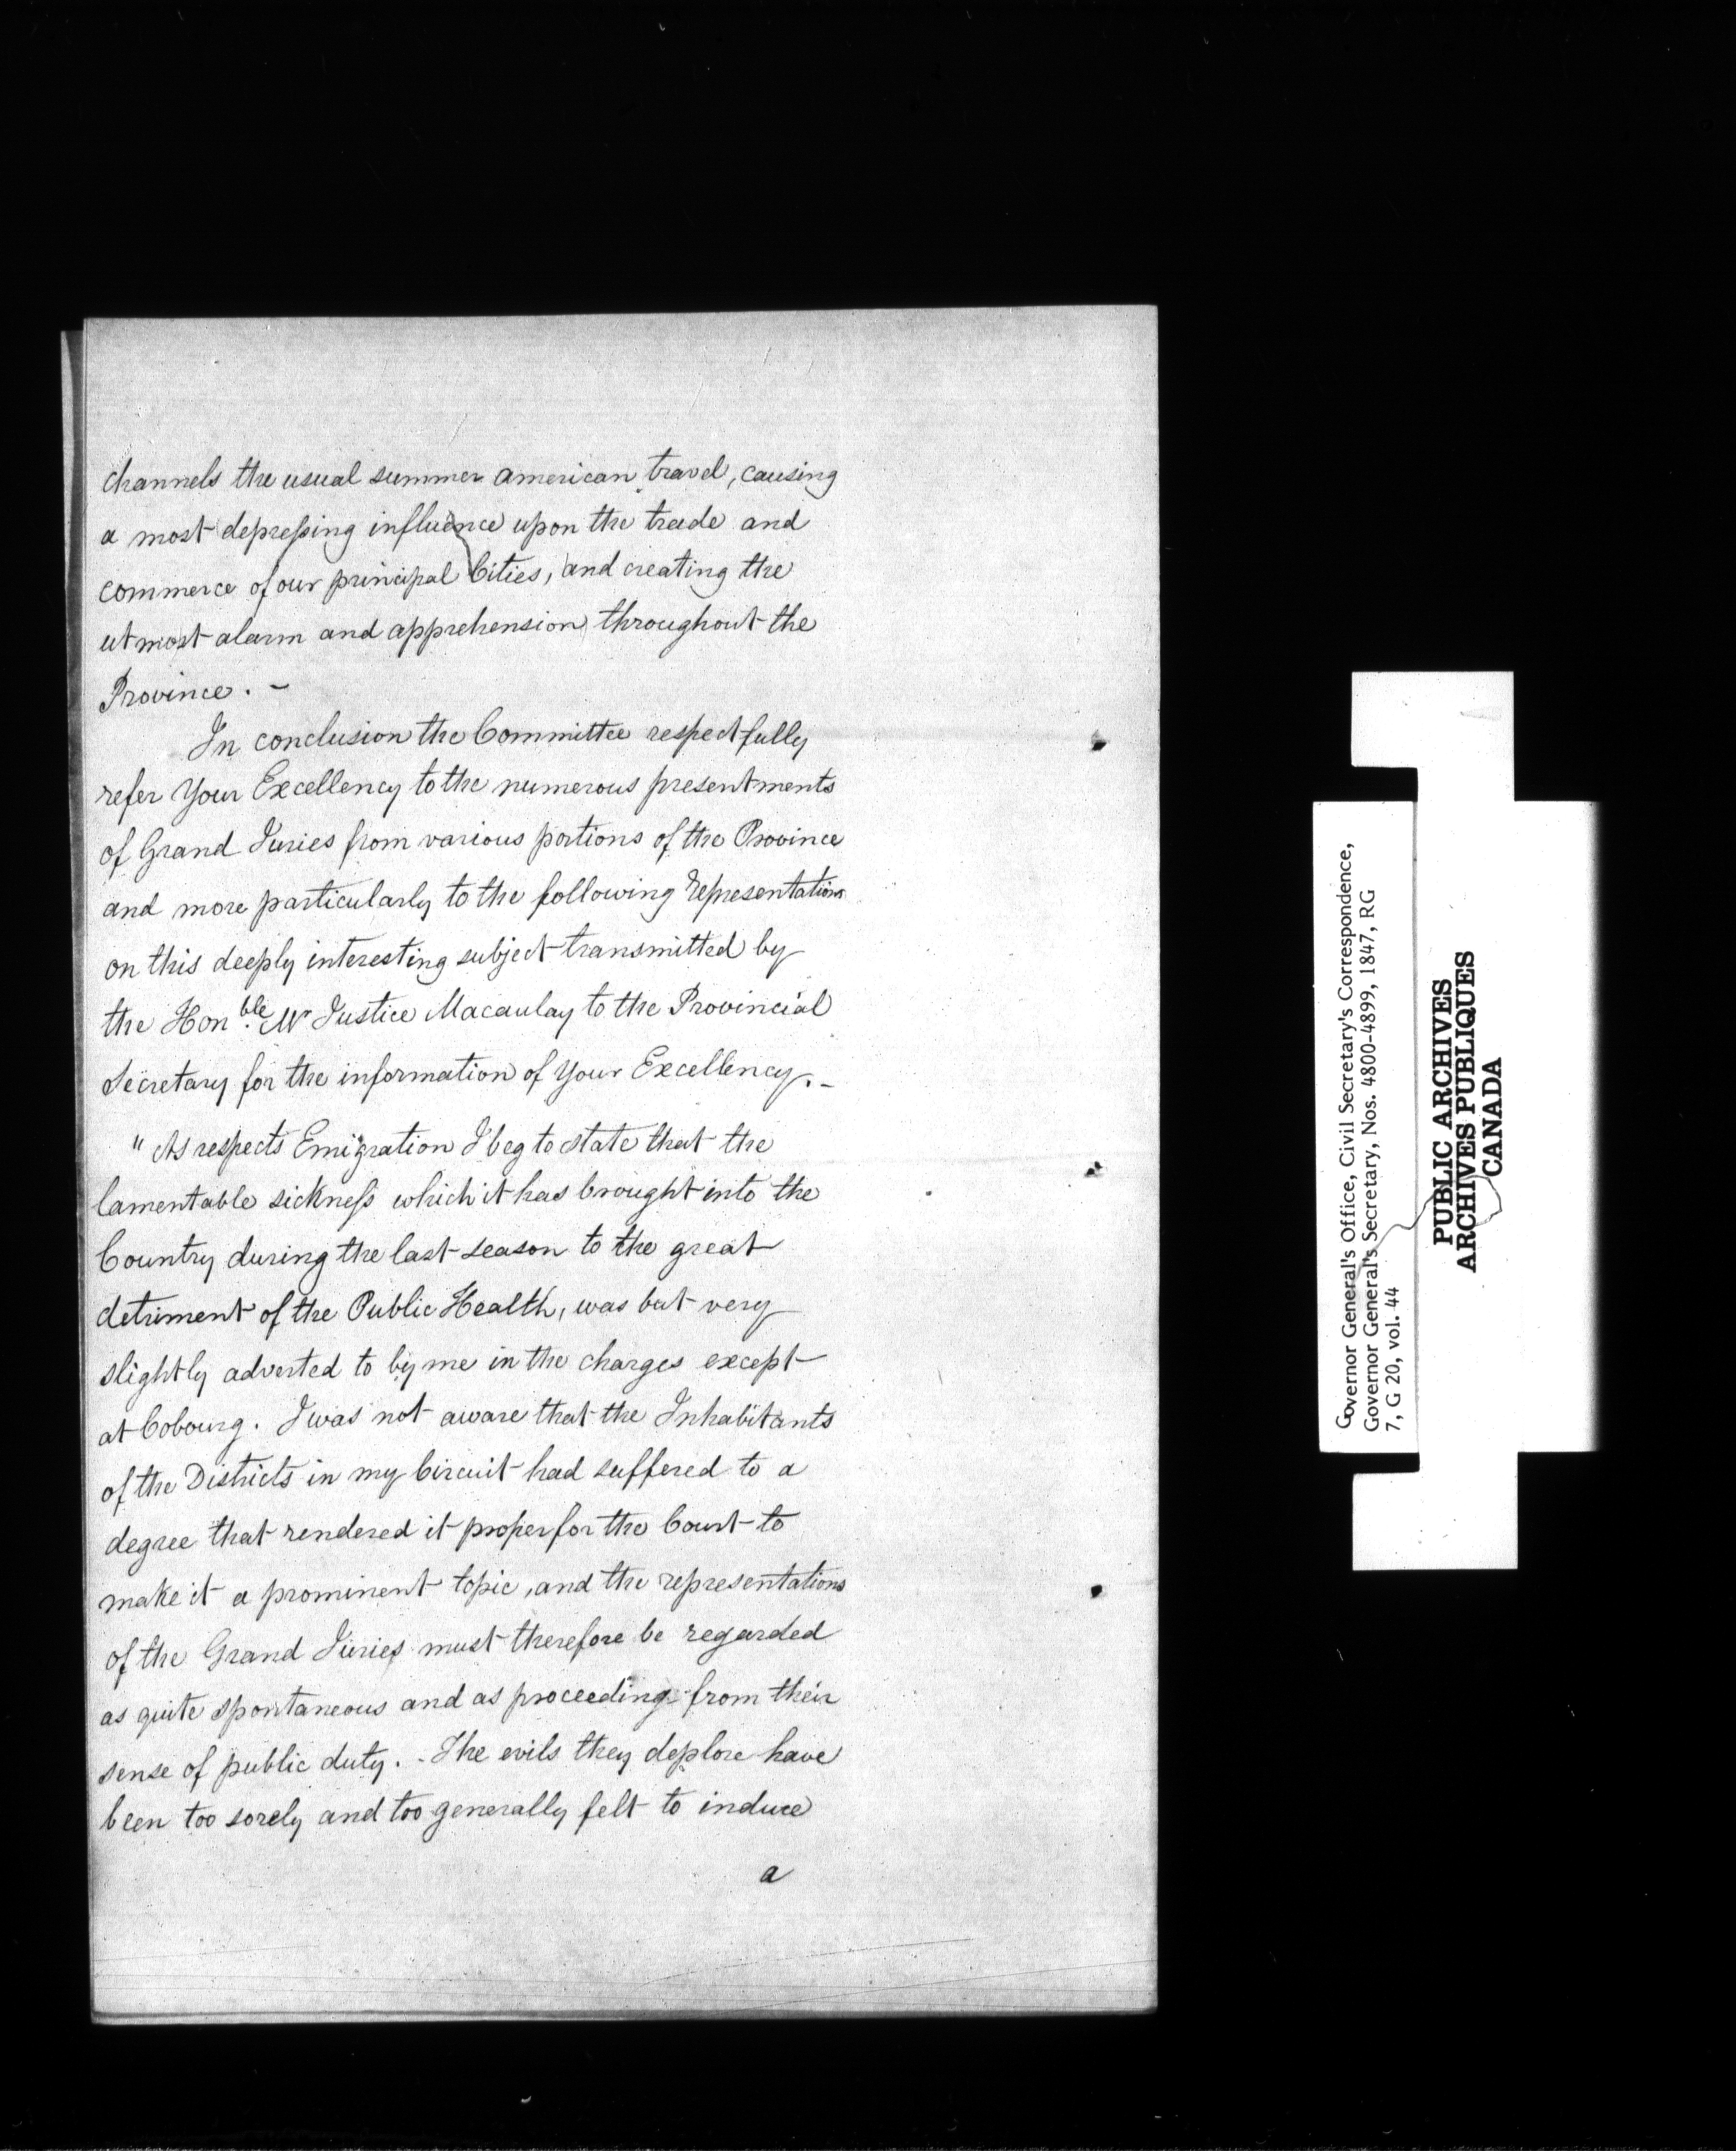 channels the usual summer American travel, causing
a most depressing influence upon the trade and
commerce of our principal Cities, and creating the
utmost alarm and apprehension throughout the
Province. -
In conclusion the Committee respectfully
refer Your Excellency to the numerous presentments
of Grand Juries from various portions of the Province
and more particularly to the following representations
on this deeply interesting subject transmitted by
the Honble. Mr Justice Macaulay to the Provincial
Secretary for the information of Your Excellency. -
" As respects Emigration I beg to state that the
lamentable sickness which it has brought into the
Country during the last season to the great
detriment of the Public Health, was but very
slightly adverted to by me in the charges except
at Cobourg. I was not aware that the Inhabitants
of the Districts in my Circuit had suffered to a
degree that rendered it proper for the Court to
make it a prominent topic, and the representations
of the Grand Juries must therefore be regarded
as quite spontaneous and as proceeding from their
sense of public duty. - The evils they deplore have
been too sorely and too generally felt to induce
a
Governor General's Office, Civil Secretary's Correspondence,
Governor General's Secretary, Nos. 4800-4899, 1847, RG
7, G 20, vol. 44
PUBLIC ARCHIVES
ARCHIVES PUBLIQUES
CANADA